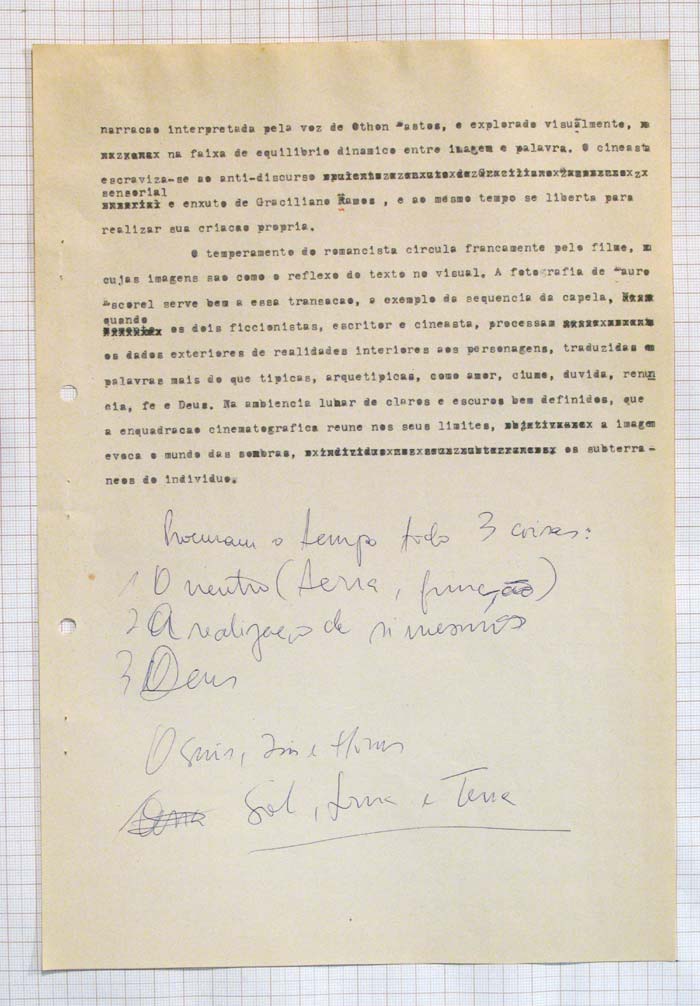 narracao interpretada pela voz de Othon Bastos, e explorado visualmente,
na faixa de equilibrio dinamico entre imagem e palavra. O cineasta
escraviza-se ao anti-discurso
sensorial
e enxuto de Graciliano Ramos , e ao mesmo tempo se liberta para
realizar sua criacao propria.
O temperamento do romancista circula francamente pelo filme,
cujas imagens sao como o reflexo do texto no visual. A fotografia de Mauro
Escorel serve bem a essa transacao, a exemplo da sequencia da capela,
quando
os dois ficcionistas, escritor e cineasta, processam
os dados exteriores de realidades interiores aos personagens, traduzidas em
palavras mais do que tipicas, arquetipicas, como amor, ciume, duvida, renun
cia, fe e Deus. Na ambiencia lunar de claros e escuros bem definidos, que
a enquadracao cinematografica reune nos seus limites, a imagem
evoca o mundo das sombras, os subterra-
neos do individuo.
Procuram o tempo todo 3 coisas:
1 O neutro (terra, função)
2 A realizaço de si mesmos
3 Deus
Osiris, Isis e Horus
Sol, Lua e Terra